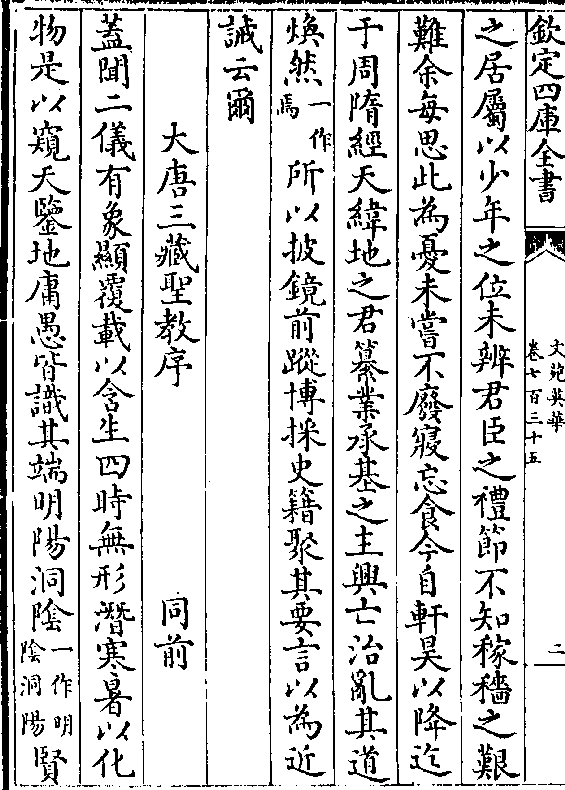 欽定四庫全書
文苑英華
卷七百三十五
二
之居屬以少年之位未辨君臣之禮節不知稼穡之艱
難余每思此為憂未嘗不廢寢忘食今自軒昊以降迄
于周隋經天緯地之君纂業承基之主興亡治亂其道
煥然一作焉所以披鏡前蹤博採史籍聚其要言以為近
誡云爾
大唐三藏聖教序 同前
蓋聞二儀有象顯覆載以含生四時無形潛寒暑以化
物是以窺天鑒地庸愚皆識其端明陽洞陰一作明陰洞陽賢